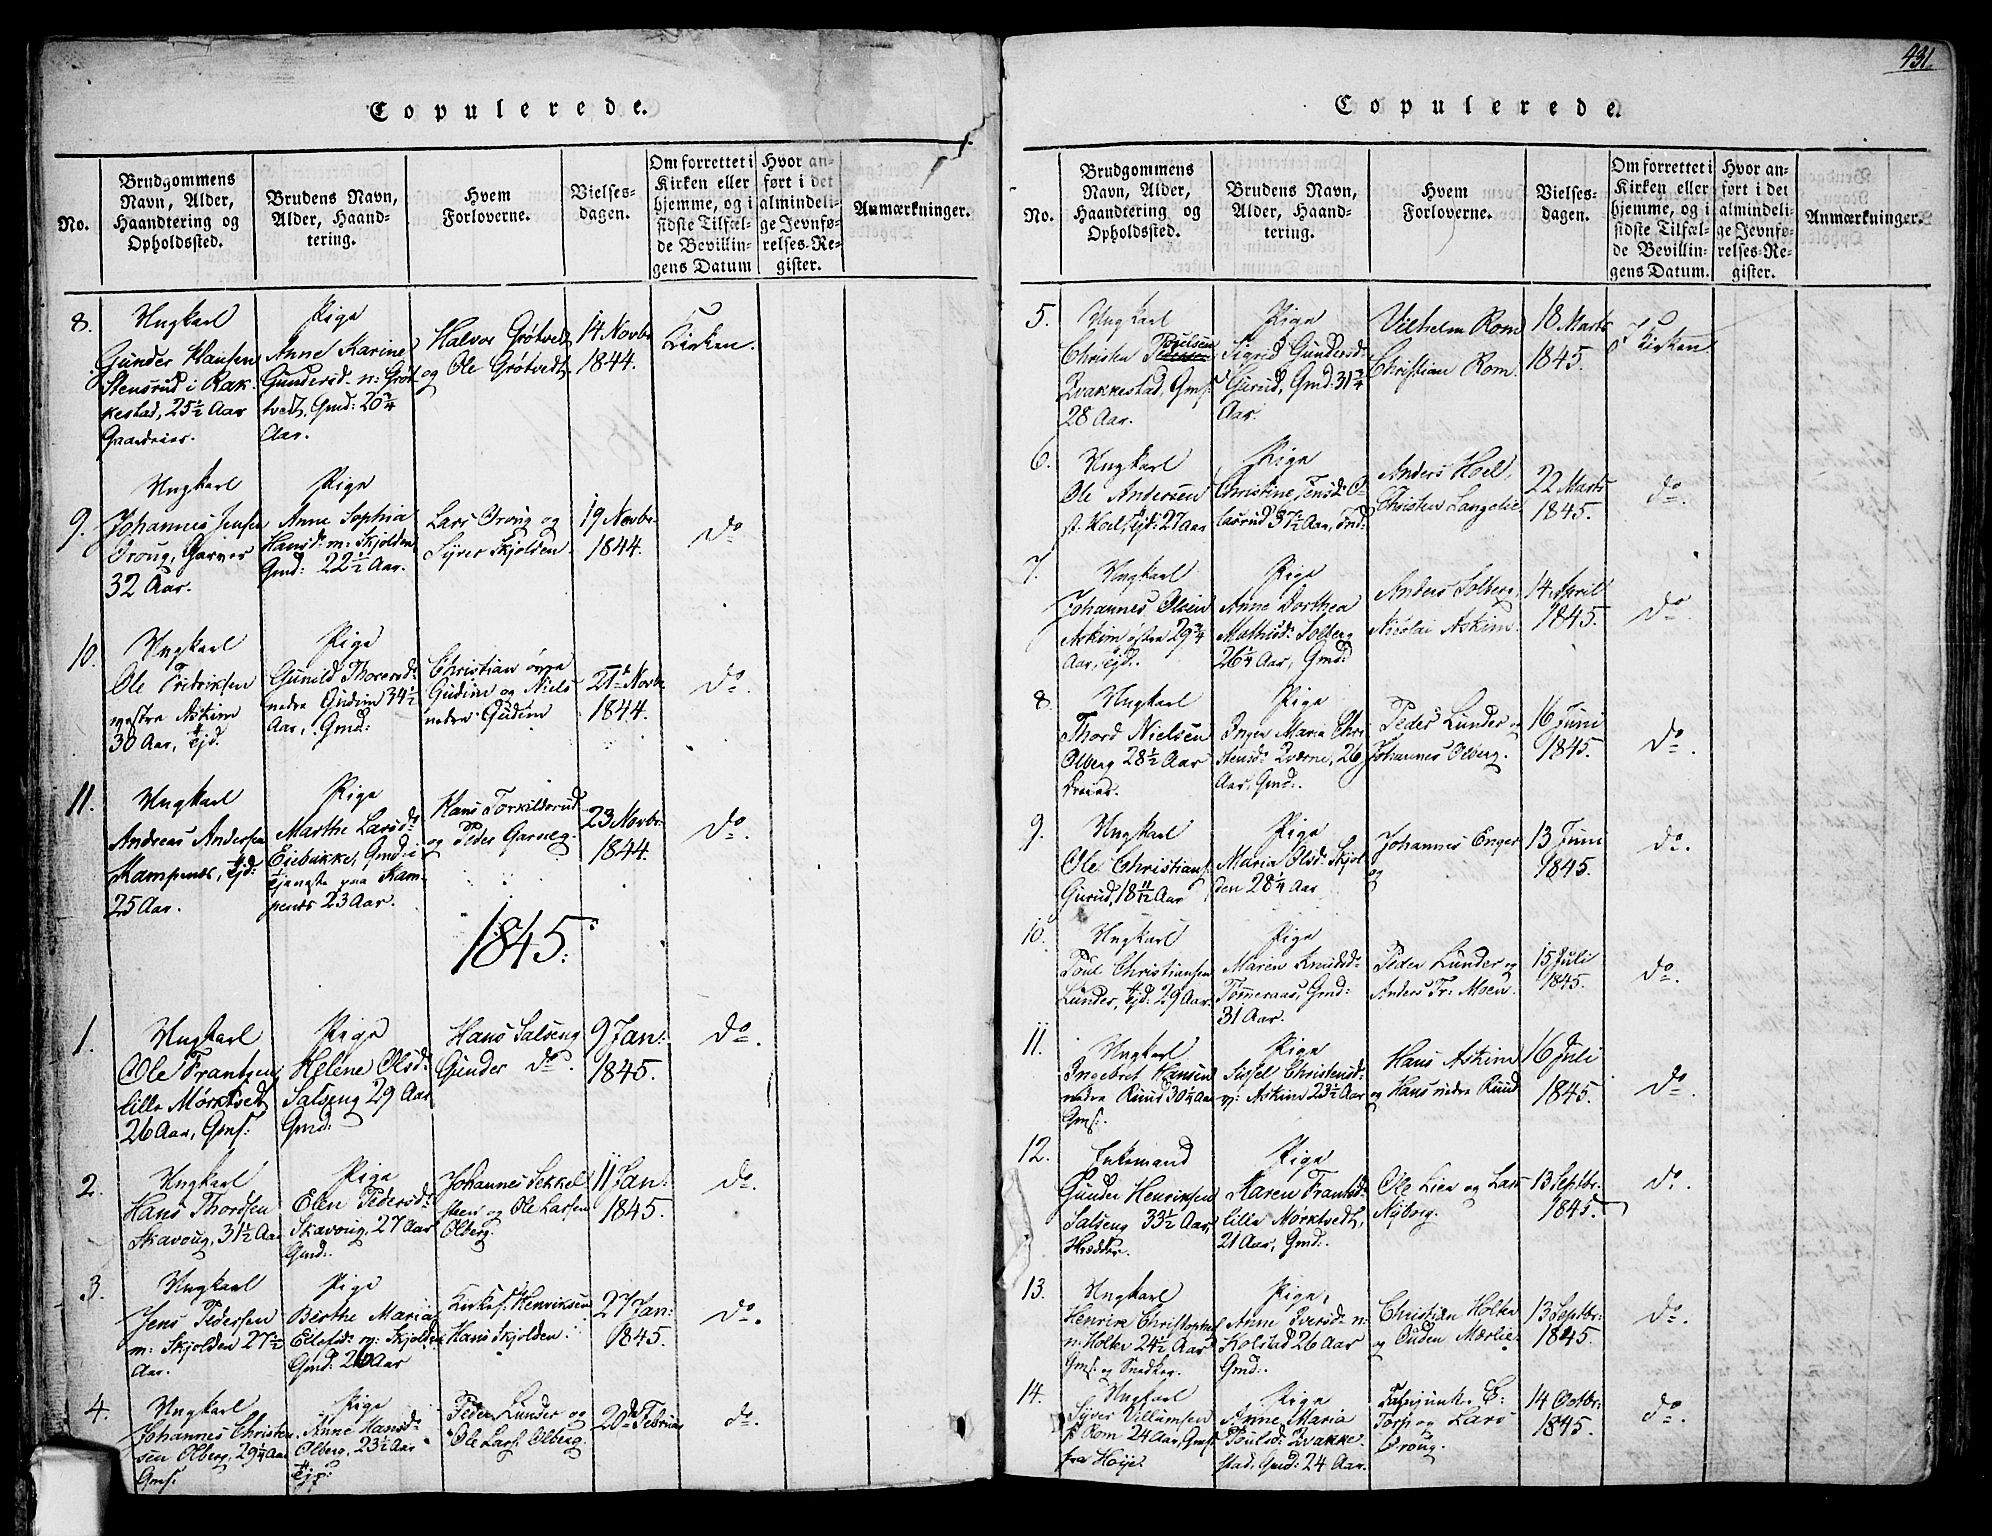 Copulerede.
No.
Brudgommens
Navn, Alder,
Haandtering og
Opholdssted.
Brudens Navn,
Alder, Haand-
tering.
Hvem
Forloverne.
Vielses-
dagen.
Om forrettet i
Kirken eller
hjemme, og i
sidste Tilfæl-
de Bevillin-
gens Datum
Hvor an-
ført i det
almindeli-
ge Jevnfø-
relses-Re-
gister.
Anmærkninger.
8.
Ungkarl
Gunder Hansen
Stensrud i Rak-
kestad, 25½ Aar
Gaardeier.
Pige
Anne Karine
Gundersd. n: Grøt-
vedt, Gmd: 20¾
Aar.
Halvor Grøtvedt
og Ole Grøtvedt
14 Novbr.
1844.
Kirken.
9.
Ungkarl
Johannes Jensen
Troug, Garver
32 Aar.
Pige
Anne Sophia
Hansd: m: Skjolden
Gmd: 22½ Aar.
Lars Troug og
Syver Skjolden
19 Novbr.
1844.
do
10.
Ungkarl
Ole Fredriksen
vestre Askim
30 Aar, Tjd.
Pige
Gunild Thoresd:
nedre Gudim 34½
Aar, Gmd:
Christian øvre
Gudim og Niels
nedre Gudim
21de Novbr.
1844.
do.
11.
Ungkarl
Andreas Andersen
Kampenes, Tjd:
25 Aar.
Pige
Marthe Larsd:
Eiebakke, Gmd: i
Tjeneste paa Kam-
penes 23 Aar.
Hans Torkildsrud
og Peder Garneg
23 Novbr.
1844.
do.
1845.
1.
Ungkarl
Ole Frantzen
lille Mørktvedt
26 Aar, Gmf:
Pige
Helene Olsd:
Salseng 29 Aar
Gmd:
Hans Salseng
Gunder do.
9 Jan:
1845.
do.
2.
Ungkarl
Hans Thordsen
Skavoug, 31½ Aar
Pige
Elen Pedersd:
Skavoug, 27 Aar
Gmd:
Johannes Sekkel-
steen og Ole Larsen
Olberg.
11 Jan:
1845.
do.
3.
Ungkarl
Jens Pedersen
m: Skjolden 27½
Aar.
Pige
Birthe Maria
Skjolden
Gmd: 26 Aar
Kirkes: Henriksen
Hans Skjolden
27 Jan:
1845.
do.
4.
Ungkarl
Johannes Christen-
sen Olberg, 29¼ Aar
Gmf:
Pige
Anne Hansd:
Olberg, 23½ Aar
Tjp:
Peder Lunder og
Ole Lars: Olberg.
20de Februar
do.
431.
Copulerede.
No.
Brudgommens
Navn, Alder,
Haandtering og
Opholdssted.
Brudens Navn,
Alder, Haand-
tering.
Hvem
Forloverne.
Vielses-
dagen.
Om forrettet i
Kirken eller
hjemme, og i
sidste Tilfæl-
de Bevillin-
gens Datum.
Hvor an-
ført i det
almindeli-
ge Jevnfø-
relses-Re-
gister.
Anmærkninger.
5.
Ungkarl
Poulsen
Christen Pedersen
Kvakkestad, Gmf:
28 Aar.
Pige
Sigrid Gundersd:
Gurud, Gmd: 31¾
Aar.
Vilhelm Rom
Christian Rom.
18 Marts
1845.
I Kirken
6.
Ungkarl
Ole Andersen
st. Hoel, Tjd: 27 Aar
Pige
Christine Jensd: O-
lasrud 37½ Aar, Ind:
Anders Hoel,
Christen Langelie
22 Marts
1845.
do.
7.
Ungkarl
Johannes Olsen
Askim østre 29¾
Aar, Tjd.
Pige
Anne Dorthea
Mathisd: Solberg
26¼ Aar, Gmd:
Anders Solberg,
Nicolai Askim.
14 April
1845.
do.
8.
Ungkarl
Thord Nielsen
Olberg 28½ Aar
Pige
Inger Maria Chri-
stensd: Kværne, 26
Aar, Gmd:
Peder Lunder og
Johannes Olberg.
16 Juni
1845.
do.
9.
Ungkarl
Ole Christians:
Gurud, 18 11/12 Aar
Pige
Maria Olsd: Skjol-
den 28¼ Aar
Johannes Enger
og
13 Juni
1845.
do.
10.
Ungkarl
Poul Christiansen
Lunder, Tjd: 29 Aar.
Pige
Maren Knudsd:
Tømeraas, Gmd:
31 Aar.
Peder Lunder og
Anders Tr: Moen.
15 Juli
1845.
do.
11.
Ungkarl
Ingebret Hansen
nedre Ruud 30¼ Aar
Gmf:
Pige
Sissel Christensd:
v: Askim 23½ Aar
Hans Askim
og Hans nedre Ruud
16 Juli
1845.
do.
12.
Enkemand
Gunder Henriksen
Salseng 33½ Aar,
Skrædder.
Pige
Karen Frantsd:
lille Mørktvedt,
21 Aar, Gmd:
Ole Lien og Lars
Nyborg.
13 Septbr.
1845.
do.
13.
Ungkarl
Henrik Christophers:
n: Holter 24½ Aar
Gmf: og Snedker.
Pige,
Anne Iversd: n:
Kolstad 26 Aar
Gmd:
Christian Holter
og Ouden Mærlie.
13 Septbr:
1845.
do.
14.
Ungkarl
Syver Villumsen
p: Rom 24 Aar, Gmf:
fra Høije.
Pige
Anne Maria
Poulsd: Kvakke-
stad, Gmd: 24 Aar.
E:
Torp og Lars
Troug.
14 Octbr:
1845.
do.